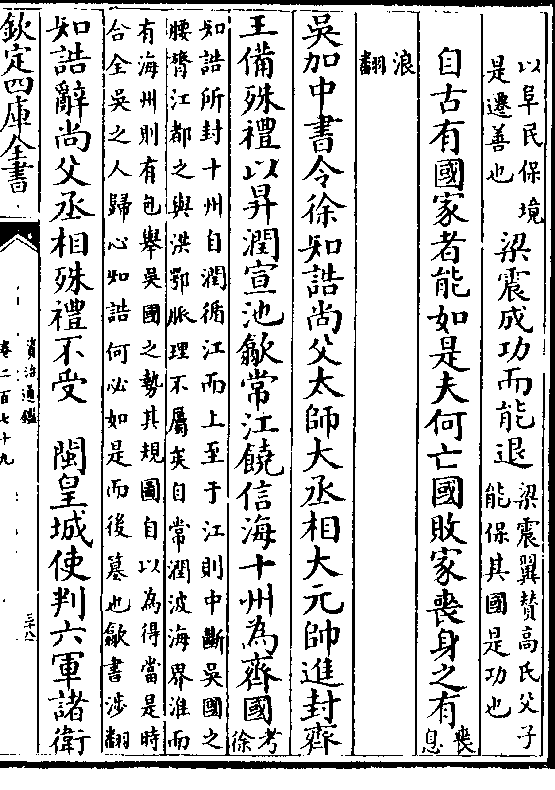 以阜民保境
是遷善也
梁震成功而能退
梁震翼贊高氏父子
能保其國是功也
自古有國家者能如是夫何亡國敗家喪身之有
喪
息
浪
翻
吳加中書令徐知誥尚父太師大丞相大元帥進封齊
王備殊禮以昇潤宣池歙常江饒信海十州為齊國
考
徐
知誥所封十州自潤循江而上至于江則中斷吳國之
腰膂江都之與洪鄂脈理不屬矣自常潤波海界淮而
有海州則有包舉吳國之勢其規圖自以為得當是時
合全吳之人歸心知誥何必如是而後墓也歙書涉翻
知誥辭尚父丞相殊禮不受　閩皇城使判六軍諸衛
欽定四庫全書
資治通鑑
卷二百七十九
三十八